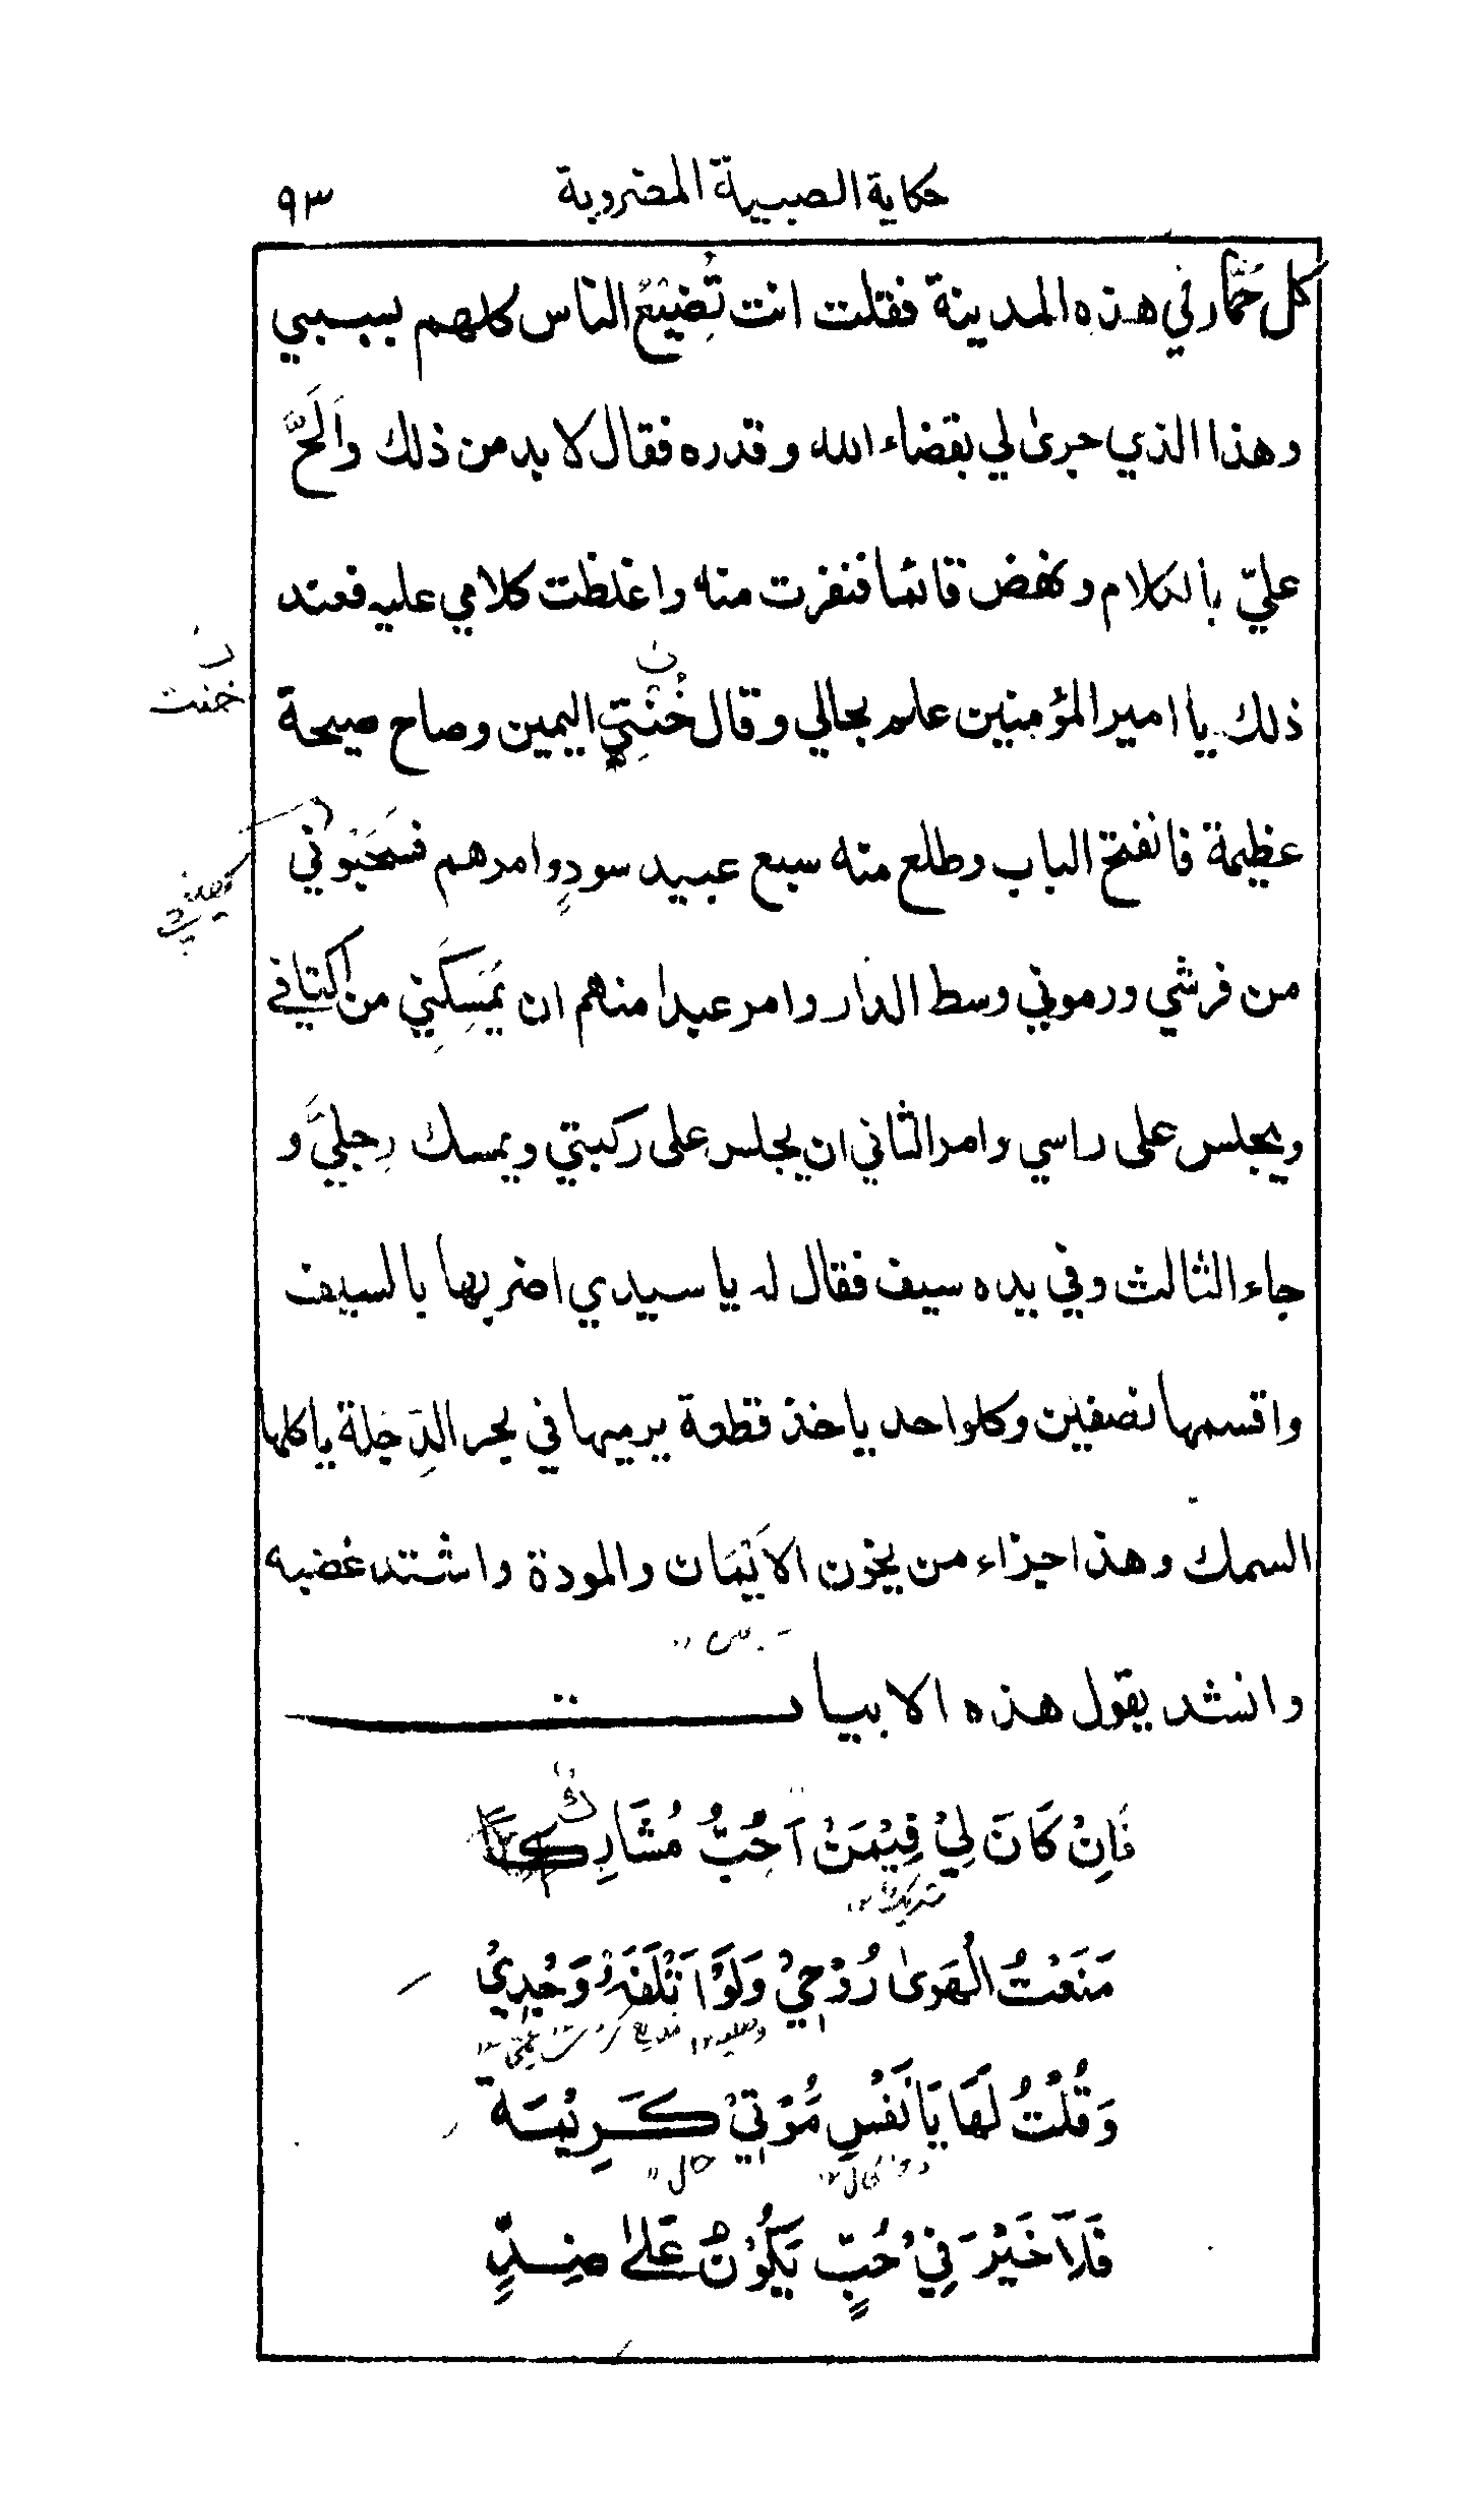 حكاية الصبية المضروبة ٩٣
كل حَمَّار في هذه المدينة فقلت انت تُضِيْعُ الناس كلهم بسببي
وهذا الذي جرىٰ لي بقضاء الله وقدره فقال لا بد من ذلك واَلَحَّ
عليّ بالكلام ونهض قائما فنفرت منه واغلظت كلامي عليه فعند
ذلك يا امير المؤمنين علم بحالي وقال خُنْتِي اليمين وصاح صيحة
خنت
عظيمة فانفتح الباب وطلع منه سبع عبيد سودٍ وامرهم فسَحَبَوْني
من فرشي ورموني وسط الدار وامر عبدا منهم ان يَمَسِكَنِي من اكتافي
ويجلس على راسي وامر الثاني ان يجلس على ركبتي ويمسك رِجليَّ و
جاء الثالث وفي يده سيف فقال له يا سيدي اضربها بالسيف
واقسمها نصفين وكلواحد ياخذ قطعة يرميها في بحر الدِجلة ياكلها
السمك وهذا جزاء من يخون الاَيْمَان والمودة واشتد غضبه
وانشد يقول هذه الابيات
فَاِنْ كَانَ لِيْ فِيْمَنْ اَحِبُّ مُشَارِكٌ
مَنَعْتُ الْهَوىٰ رُوْحِيْ وَلَوْ اَتْلَفَنِيْ وَجْدِيْ
وَقُلْتُ لَهَا يَا نَفْسِ مُوْتِيْ كَرِيْمَة
فَلَا خَيْرَ فِيْ حُبٍّ يَكُوْنُ عَلىٰ ضِدٍّ